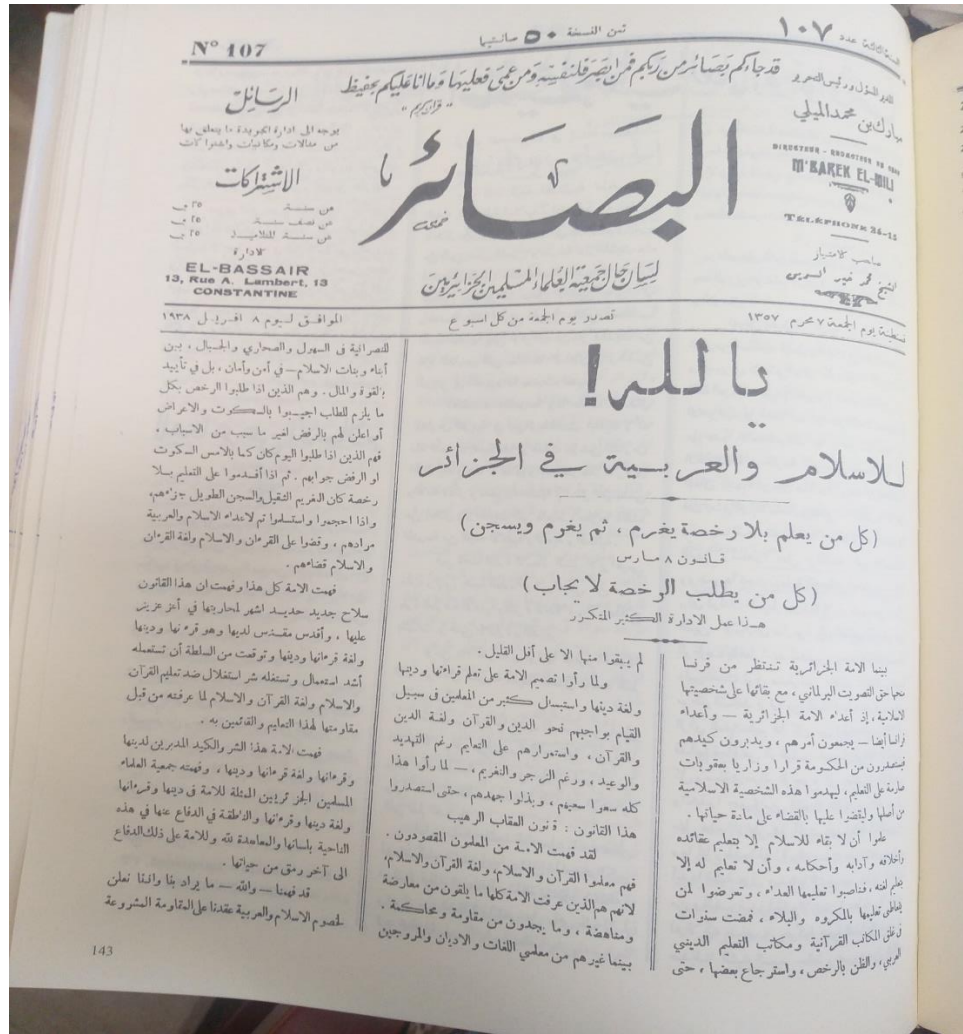 السنة الثالثة عدد ١٠٧
ثمن النسخة ٥٠ سانتيما
N° 107
قد جاءكم بصائر من ربكم فمن ابصر فلنفسه ومن عمي فعليها وما انا عليكم بحفيظ
"قرآن كريم"
المدير المسؤول ورئيس التحرير
مبارك بن محمد الميلي
DIRECTEUR - REDACTEUR EN CHEF
M'BAREK EL-MILI
TÉLÉPHONE 26-15
صاحب الامتياز
الشيخ محمد خير الدين
البصائر
لسان حال جمعية العلماء المسلمين الجزائريين
الرسائل
يوجه الى ادارة الجريدة ما يتعلق بها
من مقالات ومكاتبات واشتراكات
الاشتراكات
عن سنة ٢٥ ف
عن نصف سنة ١٥ ف
عن سنة للتلاميذ ٢٥ ف
الادارة
EL-BASSAIR
13, Rue A. Lambert, 13
CONSTANTINE
قسنطينة يوم الجمعة ٧ محرم ١٣٥٧
تصدر يوم الجمعة من كل اسبوع
الموافق ليوم ٨ افريل ١٩٣٨
يا لله!
للاسلام والعربية في الجزائر
(كل من يعلم بلا رخصة يغرم ، ثم يغرم ويسجن)
قانون ٨ مارس
(كل من يطلب الرخصة لا يجاب)
هذا عمل الادارة الكثير المتكرر
بينما الامة الجزائرية تنتظر من فرنسا
منحها حق التصويت البرلماني ، مع بقائها على شخصيتها
الاسلامية ، إذ أعداء الامة الجزائرية — وأعداء
فرنسا أيضا — يجمعون أمرهم ، ويدبرون كيدهم
فيستصدرون من الحكومة قرارا وزاريا بعقوبات
صارمة على التعليم ، ليهدموا هذه الشخصية الاسلامية
من أصلها وليقضوا عليها بالقضاء على مادة حياتها .
علموا أن لا بقاء للاسلام إلا بتعليم عقائده
وأخلاقه وآدابه وأحكامه ، وأن لا تعليم له إلا
بتعليم لغته ، فناصبوا تعليمها العداء ، وتعرضوا لمن
يتعاطى تعليمها بالمكروه والبلاء ، فمضت سنوات
في غلق المكاتب القرآنية ومكاتب التعليم الديني
العربي ، والظن بالرخص ، واسترجاع بعضها ، حتى
لم يبقوا منها الا على أقل القليل .
ولما رأوا تصميم الامة على تعلم قرآنها ودينها
ولغة دينها واستبسال كثير من المعلمين في سبيل
القيام بواجبهم نحو الدين والقرآن ولغة الدين
والقرآن ، واستمرارهم على التعليم رغم التهديد
والوعيد ، ورغم الزجر والتغريم ، — لما رأوا هذا
كله سعوا سعيهم ، وبذلوا جهدهم ، حتى استصدروا
هذا القانون : قانون العقاب الرهيب
لقد فهمت الامة من المعلمون المقصودون .
فهم معلموا القرآن والاسلام ، ولغة القرآن والاسلام ،
لأنهم هم الذين عرفت الامة كلها ما يلقون من معارضة
ومناهضة ، وما يجدون من مقاومة ومحاكمة .
بينما غيرهم من معلمي اللغات والاديان والمروجين
للنصرانية في السهول والصحاري والجبال ، بين
أبناء وبنات الاسلام — في أمن وأمان ، بل في تأييد
بالقوة والمال . وهم الذين اذا طلبوا الرخص بكل
ما يلزم للطلب اجيبوا بالسكوت والاعراض
أو اعلن لهم بالرفض لغير ما سبب من الاسباب .
فهم الذين اذا طلبوا اليوم كان كما بالامس السكوت
او الرفض جوابهم . ثم اذا أقدموا على التعليم بلا
رخصة كان التغريم الثقيل والسجن الطويل جزاءهم ،
واذا احجموا واستسلموا تم لاعداء الاسلام والعربية
مرادهم ، وقضوا على القرءان والاسلام ولغة القرءان
والاسلام قضاءهم .
فهمت الامة كل هذا وفهمت ان هذا القانون
سلاح جديد حديد اشهر لمحاربتها في أعز عزيز
عليها ، وأقدس مقدس لديها وهو قرءانها ودينها
ولغة قرءانها ودينها وتوقعت من السلطة أن تستعمله
أشد استعمال وتستغله شر استغلال ضد تعليم القرآن
والاسلام ولغة القرآن والاسلام لما عرفته من قبل
مقاومتها لهذا التعليم والقائمين به .
فهمت الامة هذا الشر والكيد المدبرين لدينها
وقرءانها ولغة قرءانها ودينها ، وفهمته جمعية العلماء
المسلمين الجزائريين الممثلة للامة في دينها وقرءانها
ولغة دينها وقرءانها والناطقة في الدفاع عنها في هذه
الناحية بلسانها والمعاهدة لله وللامة على ذلك الدفاع
الى آخر رمق من حياتها .
قد فهمنا — والله — ما يراد بنا واننا نعلن
لخصوم الاسلام والعربية عقدنا على المقاومة المشروعة
143